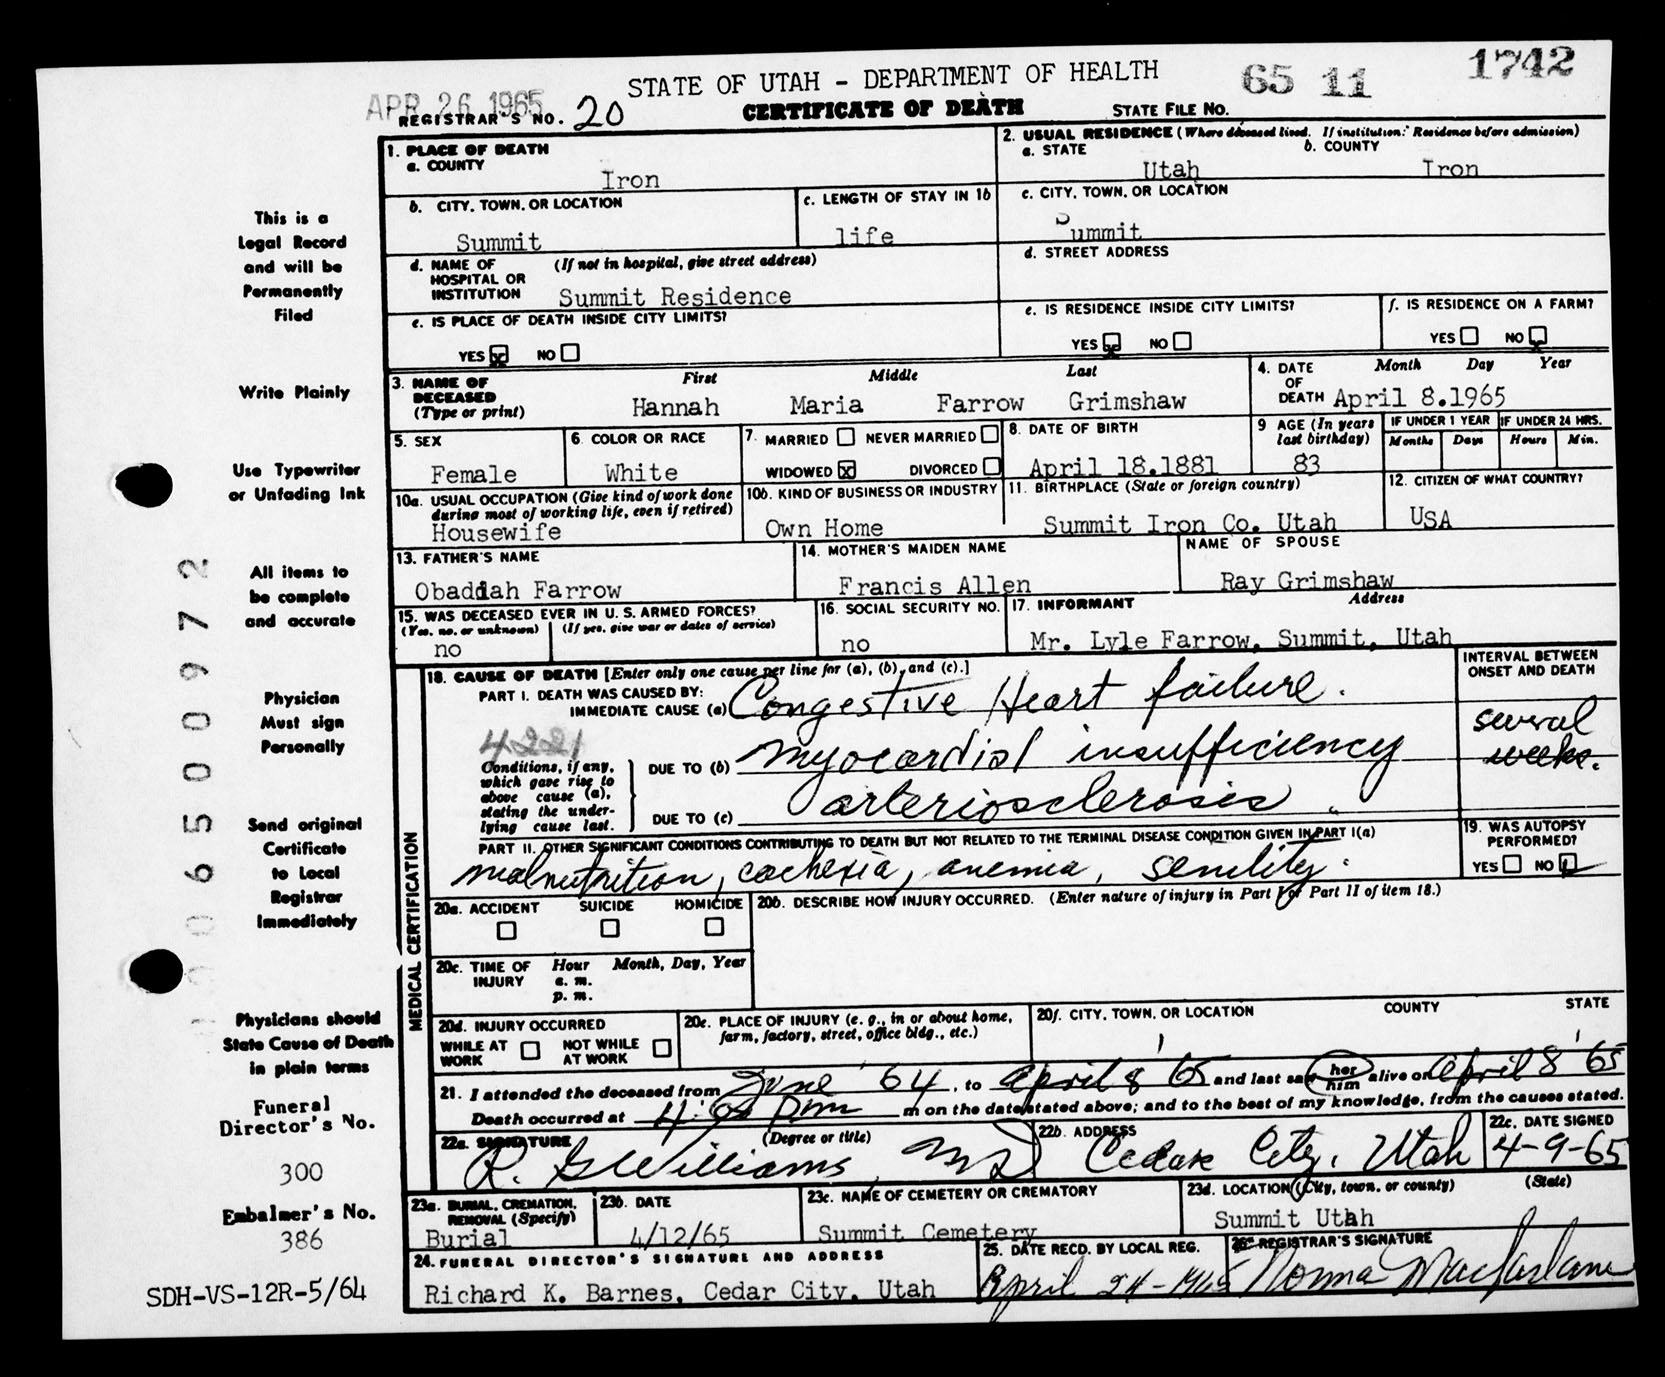 STATE OF UTAH - DEPARTMENT OF HEALTH 65 11 1742
APR 26 1965
REGISTRAR'S NO. 20 CERTIFICATE OF DEATH STATE FILE NO.
1. PLACE OF DEATH
a. COUNTY
Iron
2. USUAL RESIDENCE (Where deceased lived. If institution: Residence before admission)
a. STATE b. COUNTY
Utah Iron
b. CITY, TOWN, OR LOCATION c. LENGTH OF STAY IN 1b c. CITY, TOWN, OR LOCATION
Summit life Summit
d. NAME OF HOSPITAL OR INSTITUTION (If not in hospital, give street address) d. STREET ADDRESS
Summit Residence
e. IS PLACE OF DEATH INSIDE CITY LIMITS? e. IS RESIDENCE INSIDE CITY LIMITS? f. IS RESIDENCE ON A FARM?
YES x NO YES x NO YES NO x
3. NAME OF DECEASED (Type or print) First Middle Last 4. DATE OF DEATH Month Day Year
Hannah Maria Farrow Grimshaw April 8.1965
5. SEX 6. COLOR OR RACE 7. MARRIED NEVER MARRIED 8. DATE OF BIRTH 9 AGE (In years last birthday) IF UNDER 1 YEAR IF UNDER 24 HRS.
Months Days Hours Min.
Female White WIDOWED x DIVORCED April 18.1881 83
10a. USUAL OCCUPATION (Give kind of work done during most of working life, even if retired) 10b. KIND OF BUSINESS OR INDUSTRY 11. BIRTHPLACE (State or foreign country) 12. CITIZEN OF WHAT COUNTRY?
Housewife Own Home Summit Iron Co. Utah USA
13. FATHER'S NAME 14. MOTHER'S MAIDEN NAME NAME OF SPOUSE
Obaddiah Farrow Francis Allen Ray Grimshaw
15. WAS DECEASED EVER IN U.S. ARMED FORCES? 16. SOCIAL SECURITY NO. 17. INFORMANT Address
(Yes, no, or unknown) (If yes, give war or dates of service)
no no Mr. Lyle Farrow, Summit, Utah
18. CAUSE OF DEATH [Enter only one cause per line for (a), (b), and (c).] INTERVAL BETWEEN ONSET AND DEATH
PART I. DEATH WAS CAUSED BY:
IMMEDIATE CAUSE (a) Congestive Heart failure.
4221
Conditions, if any, which gave rise to above cause (a), stating the underlying cause last.
DUE TO (b) myocardial insufficiency several weeks.
DUE TO (c) arteriosclerosis "
PART II. OTHER SIGNIFICANT CONDITIONS CONTRIBUTING TO DEATH BUT NOT RELATED TO THE TERMINAL DISEASE CONDITION GIVEN IN PART I(a) 19. WAS AUTOPSY PERFORMED?
malnutrition, cachexia, anemia, senility. YES NO
MEDICAL CERTIFICATION
20a. ACCIDENT SUICIDE HOMICIDE 20b. DESCRIBE HOW INJURY OCCURRED. (Enter nature of injury in Part I or Part II of item 18.)
20c. TIME OF INJURY Hour a. m. p. m. Month, Day, Year
20d. INJURY OCCURRED WHILE AT WORK NOT WHILE AT WORK
20e. PLACE OF INJURY (e. g., in or about home, farm, factory, street, office bldg., etc.)
20f. CITY, TOWN, OR LOCATION COUNTY STATE
21. I attended the deceased from June '64, to April 8 '65 and last saw her him alive on April 8 '65
Death occurred at 4:00 pm m on the date stated above; and to the best of my knowledge, from the causes stated.
22a. SIGNATURE (Degree or title) 22b. ADDRESS 22c. DATE SIGNED
R. G Williams, MD Cedar City, Utah 4-9-65
23a. BURIAL, CREMATION, REMOVAL (Specify) 23b. DATE 23c. NAME OF CEMETERY OR CREMATORY 23d. LOCATION (City, town, or county) (State)
Burial 4/12/65 Summit Cemetery Summit Utah
24. FUNERAL DIRECTOR'S SIGNATURE AND ADDRESS 25. DATE RECD. BY LOCAL REG. 26. REGISTRAR'S SIGNATURE
Richard K. Barnes, Cedar City, Utah April 24-1965 Norma Macfarlane
This is a
Legal Record
and will be
Permanently
Filed
Write Plainly
Use Typewriter
or Unfading Ink
All items to
be complete
and accurate
Physician
Must sign
Personally
Send original
Certificate
to Local
Registrar
Immediately
Physicians should
State Cause of Death
in plain terms
Funeral
Director's No.
300
Embalmer's No.
386
SDH-VS-12R-5/64
00650097 2